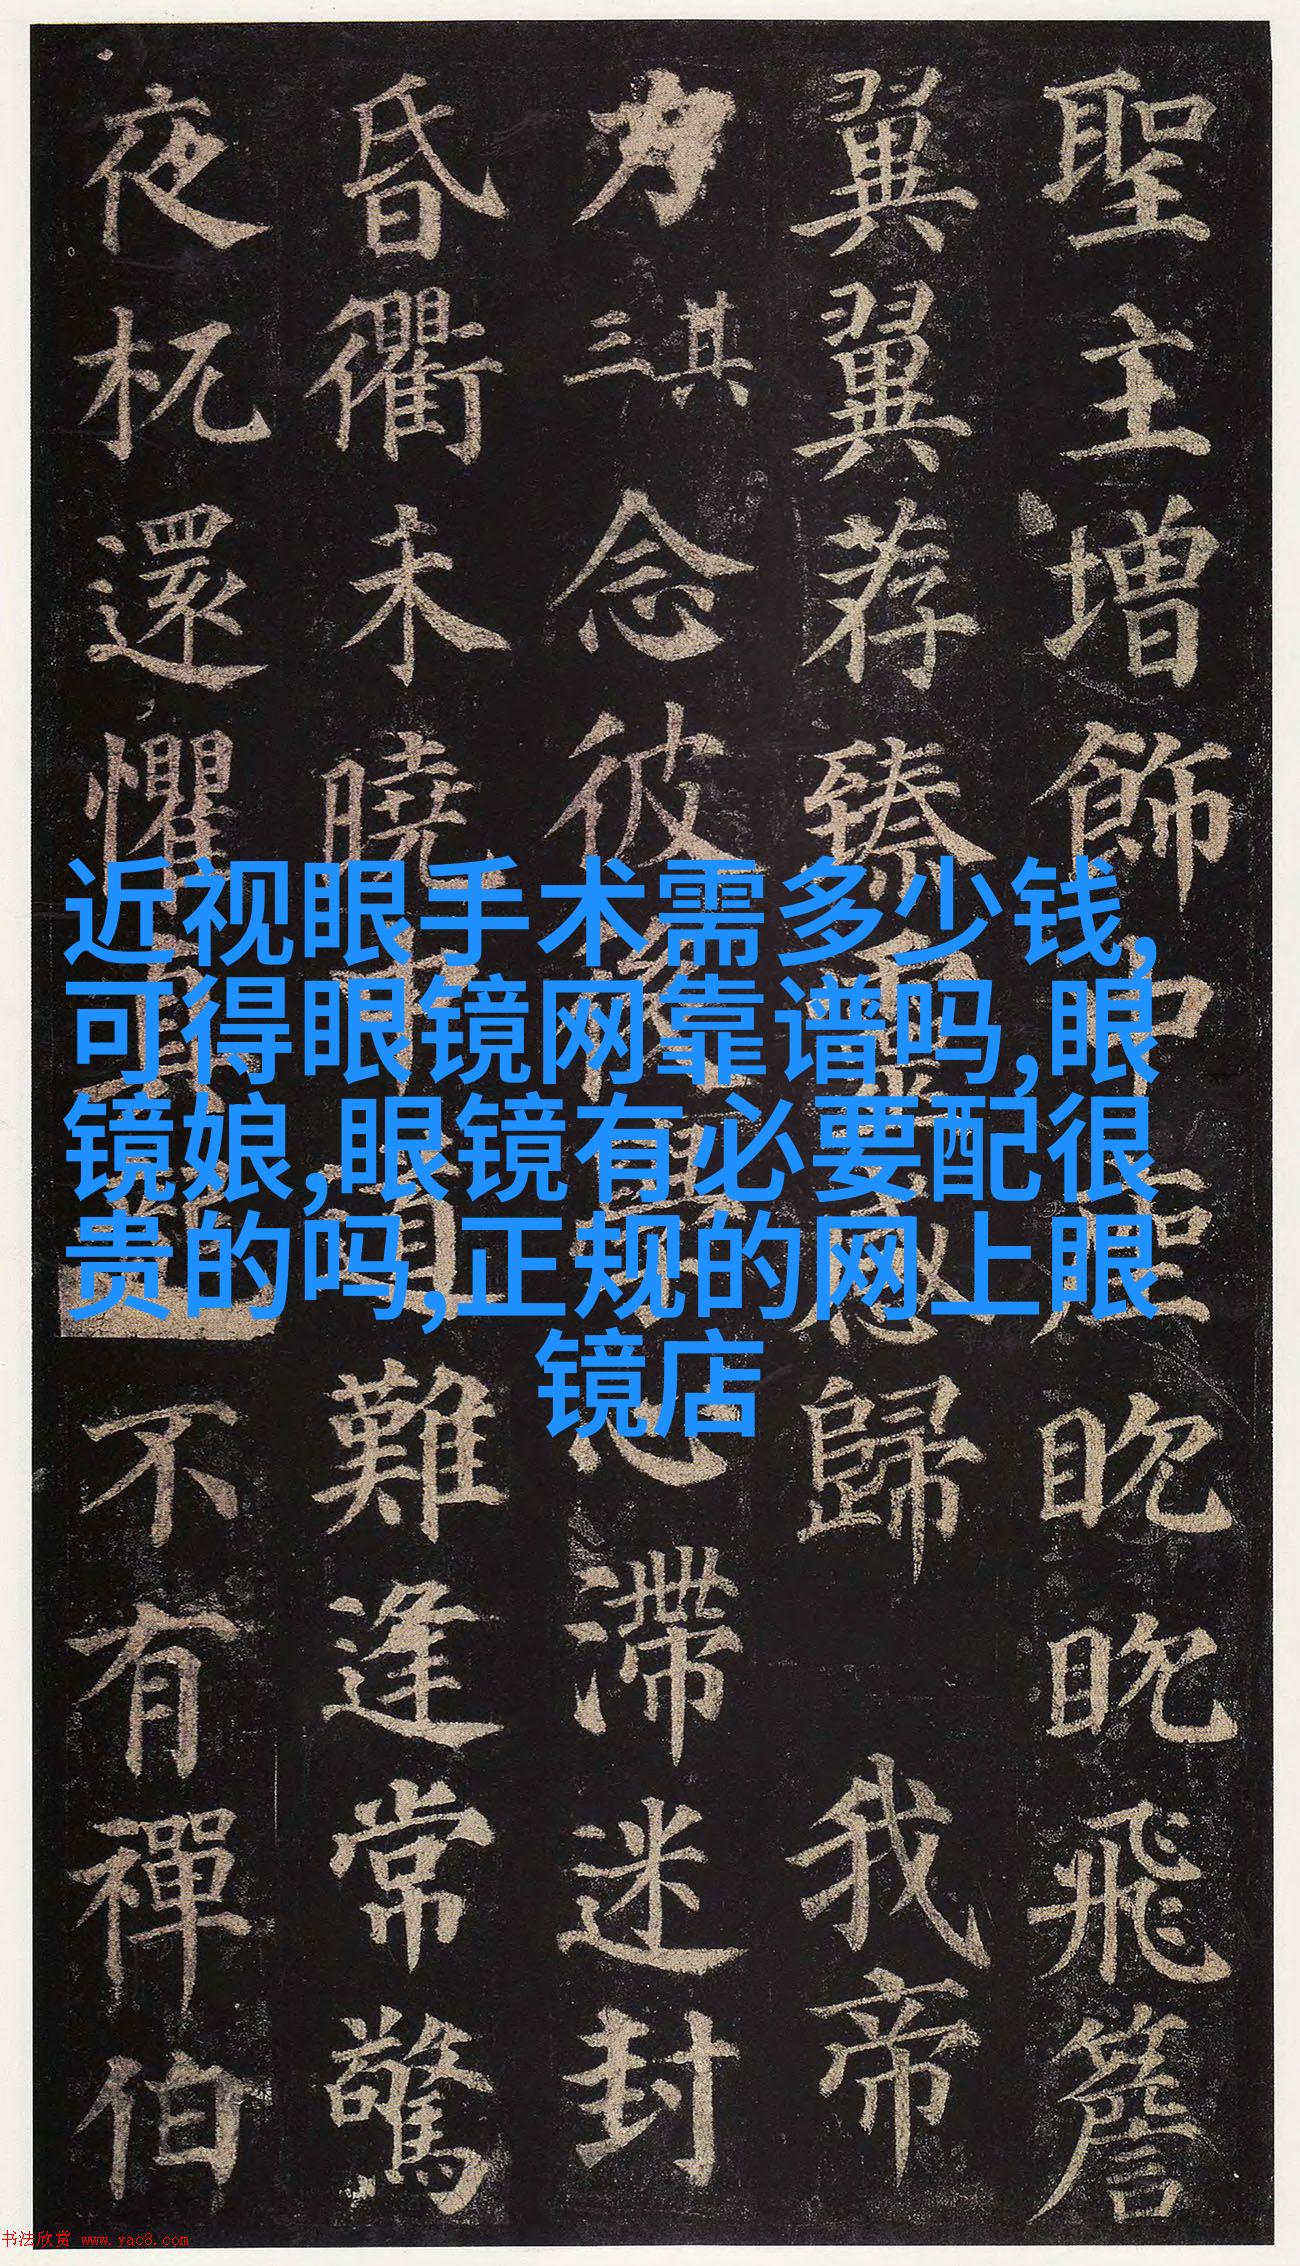 聖主增飾中眖眖飛簷
翼翼荐臻感歸 我帝
力 其三 念彼心滯迷封
昏衢未曉難逢常驚
夜杌還懼不有禪伯
近视眼手术需多少钱,
可得眼镜网靠谱吗,眼
镜娘,眼镜有必要配很
贵的吗,正规的网上眼
镜店
书法欣赏 www.yac8.com